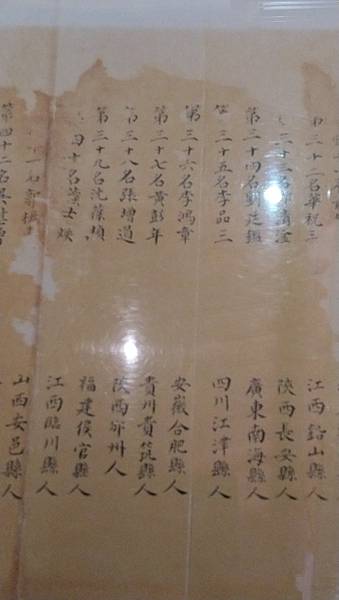 三十二名華祝三 江西鉛山縣人
三十三名 陝西長安縣人
第三十四名劉廷鑑 廣東南海縣人
三十五名李品三 四川江津縣人
第三十六名李鴻章 安徽合肥縣人
第三十七名黃彭年 貴州貴筑縣人
第三十八名張增道 陝西邠州人
第三十九名沈葆楨 福建侯官縣人
四十名黃士 江西臨川縣人
一名 山西安邑縣人
第四十二名